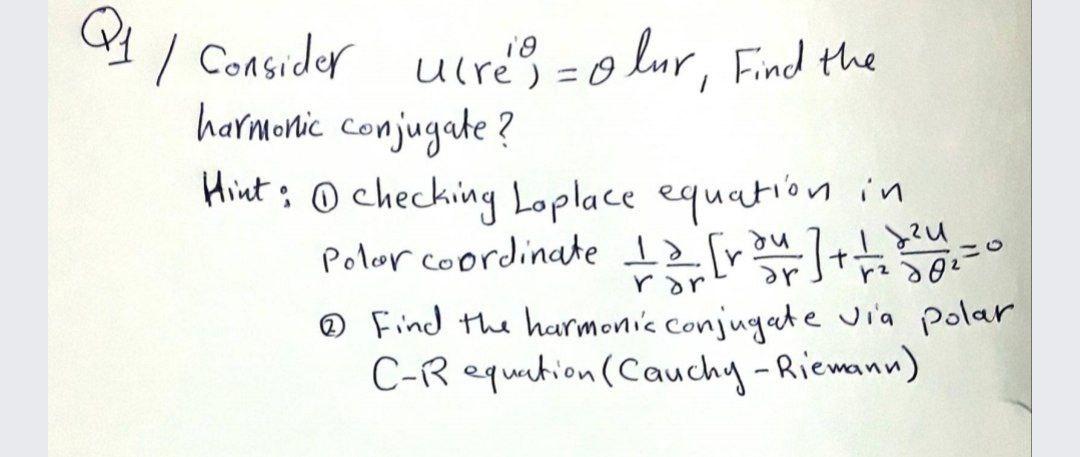 Q1 / Consider u(re^{iθ}) = θ lnr, Find the
harmonic conjugate?
Hint: ① checking Laplace equation in
Polar coordinate \frac{1}{r} \frac{∂}{∂r} [r \frac{∂u}{∂r}] + \frac{1}{r²} \frac{∂²u}{∂θ²} = 0
② Find the harmonic conjugate via polar
C-R equation (Cauchy - Riemann)